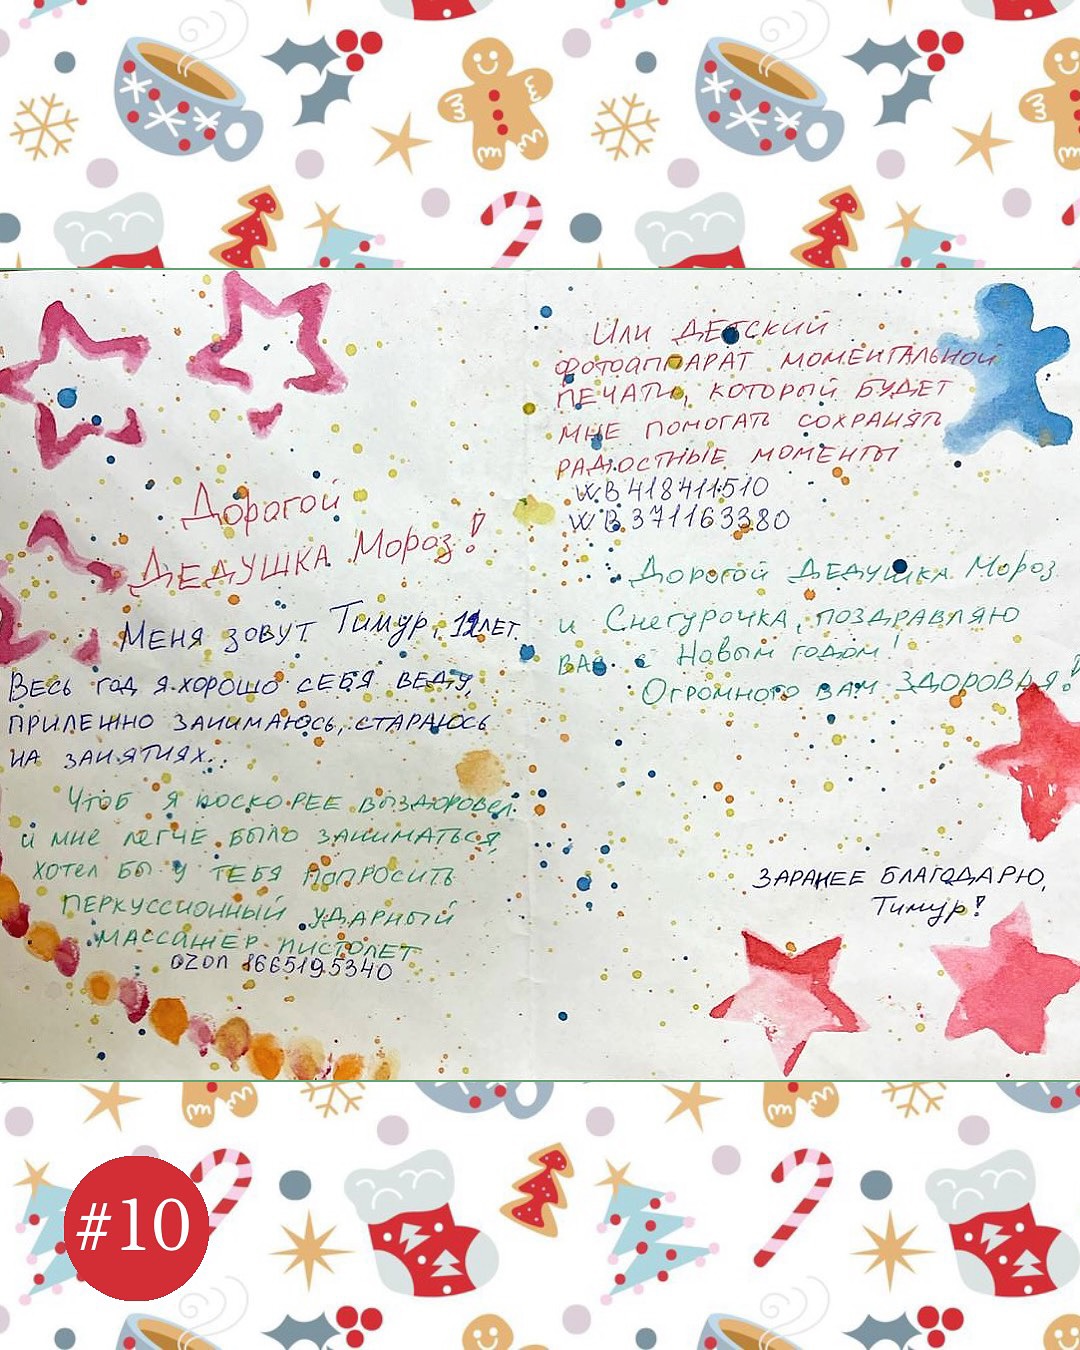 Дорогой
Дедушка Мороз!
Меня зовут Тимур, 12 лет.
Весь год я хорошо себя веду,
прилежно занимаюсь, стараюсь
на занятиях.
Чтоб я поскорее выздоровел
и мне легче было заниматься,
хотел бы у тебя попросить
перкуссионный ударный
массажер пистолет
OZON 1665195340
Или детский
фотоаппарат моментальной
печати, который будет
мне помогать сохранять
радостные моменты
WB 418411510
WB 371163380
Дорогой Дедушка Мороз
и Снегурочка, поздравляю
вас с Новым годом!
Огромного вам здоровья!
Заранее благодарю,
Тимур!
#10